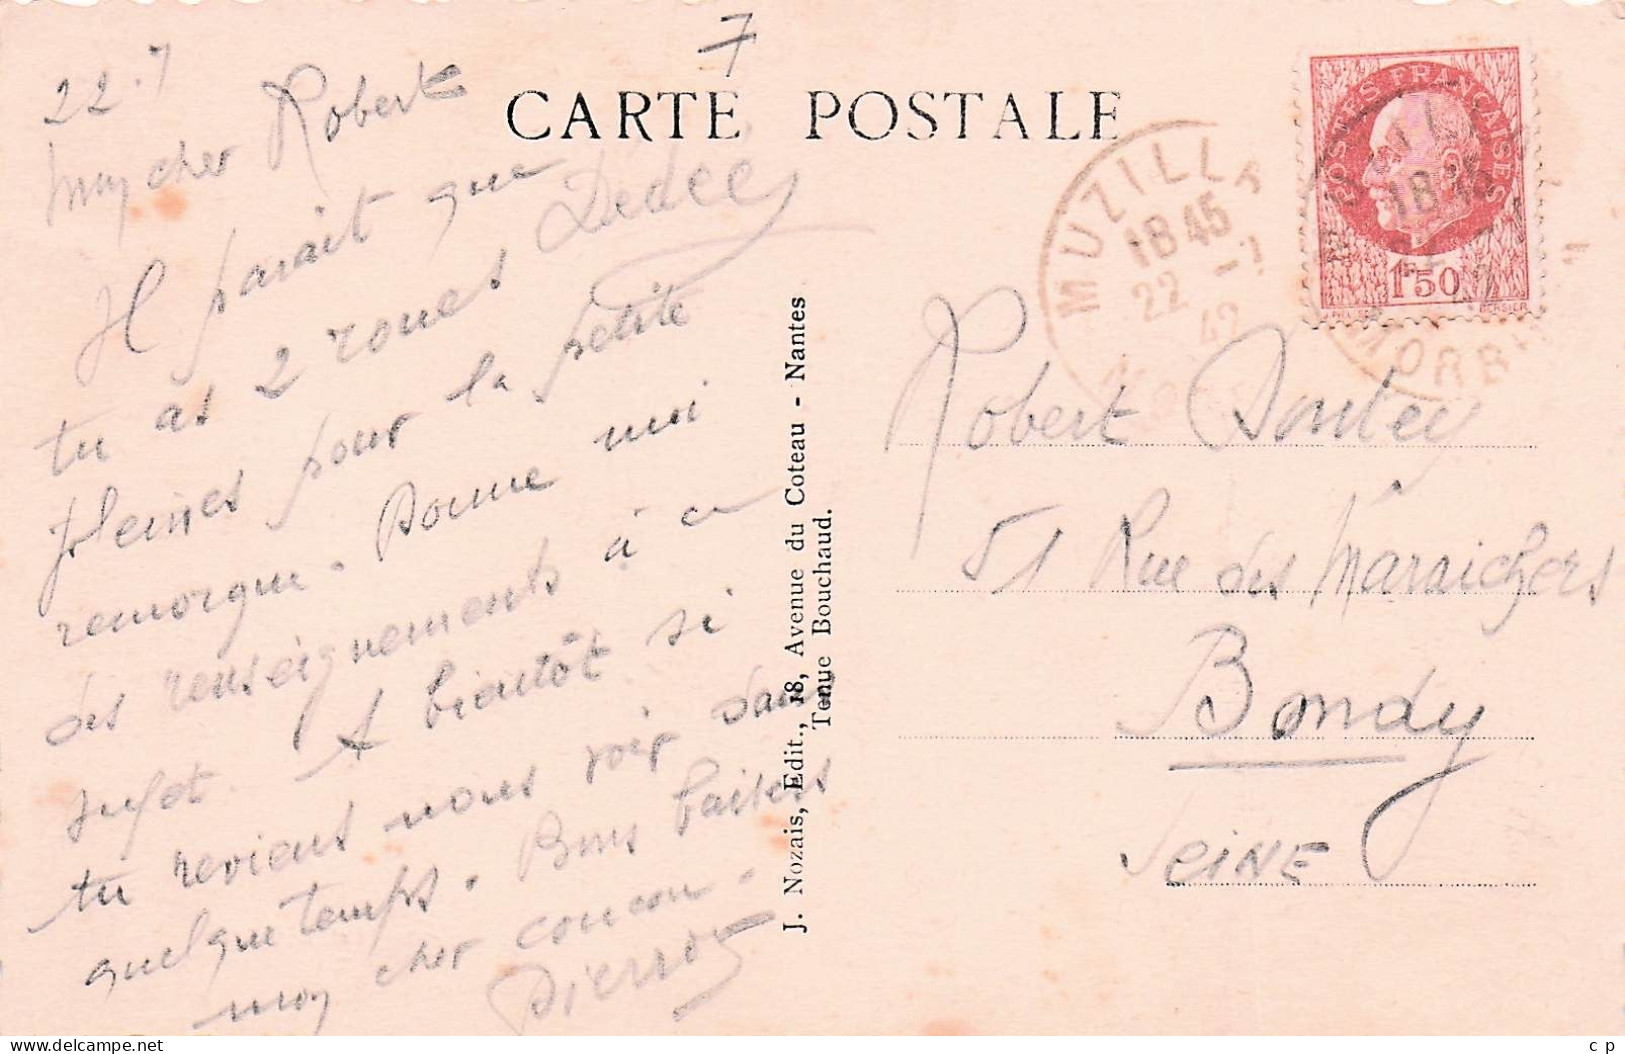 7
CARTE POSTALE
22.7
mon cher Robert
Il parait que
tu as 2 roues
pleines pour la petite
remorque. Donne moi
des renseignements à ce
sujet. A bientôt si
tu reviens nous voir dans
quelque temps. Bons baisers
mon cher coucou.
Pierrot
Dédée
J. Nozais, Edit., 18, Avenue du Coteau - Nantes
Tenue Bouchaud.
POSTES FRANÇAISES
1F50
MUZILLA
18 45
22 -7
42
MORBIHAN
Robert
51 Rue des Maraichers
Bondy
SEINE
Delcampe.net
c p